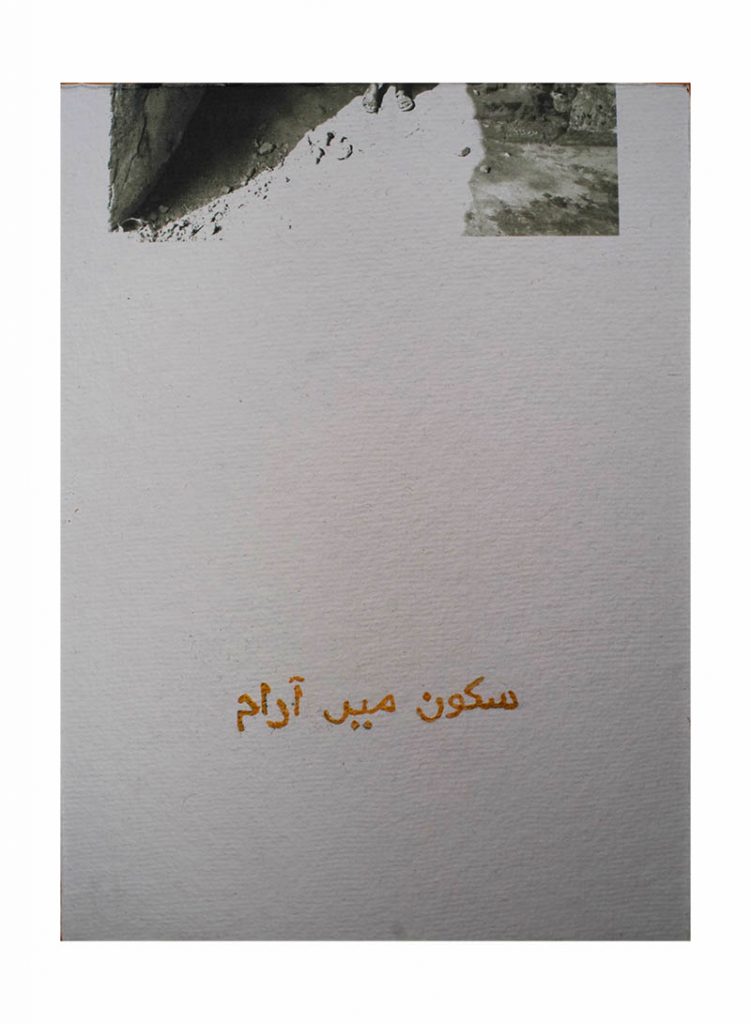 سکون میں آرام